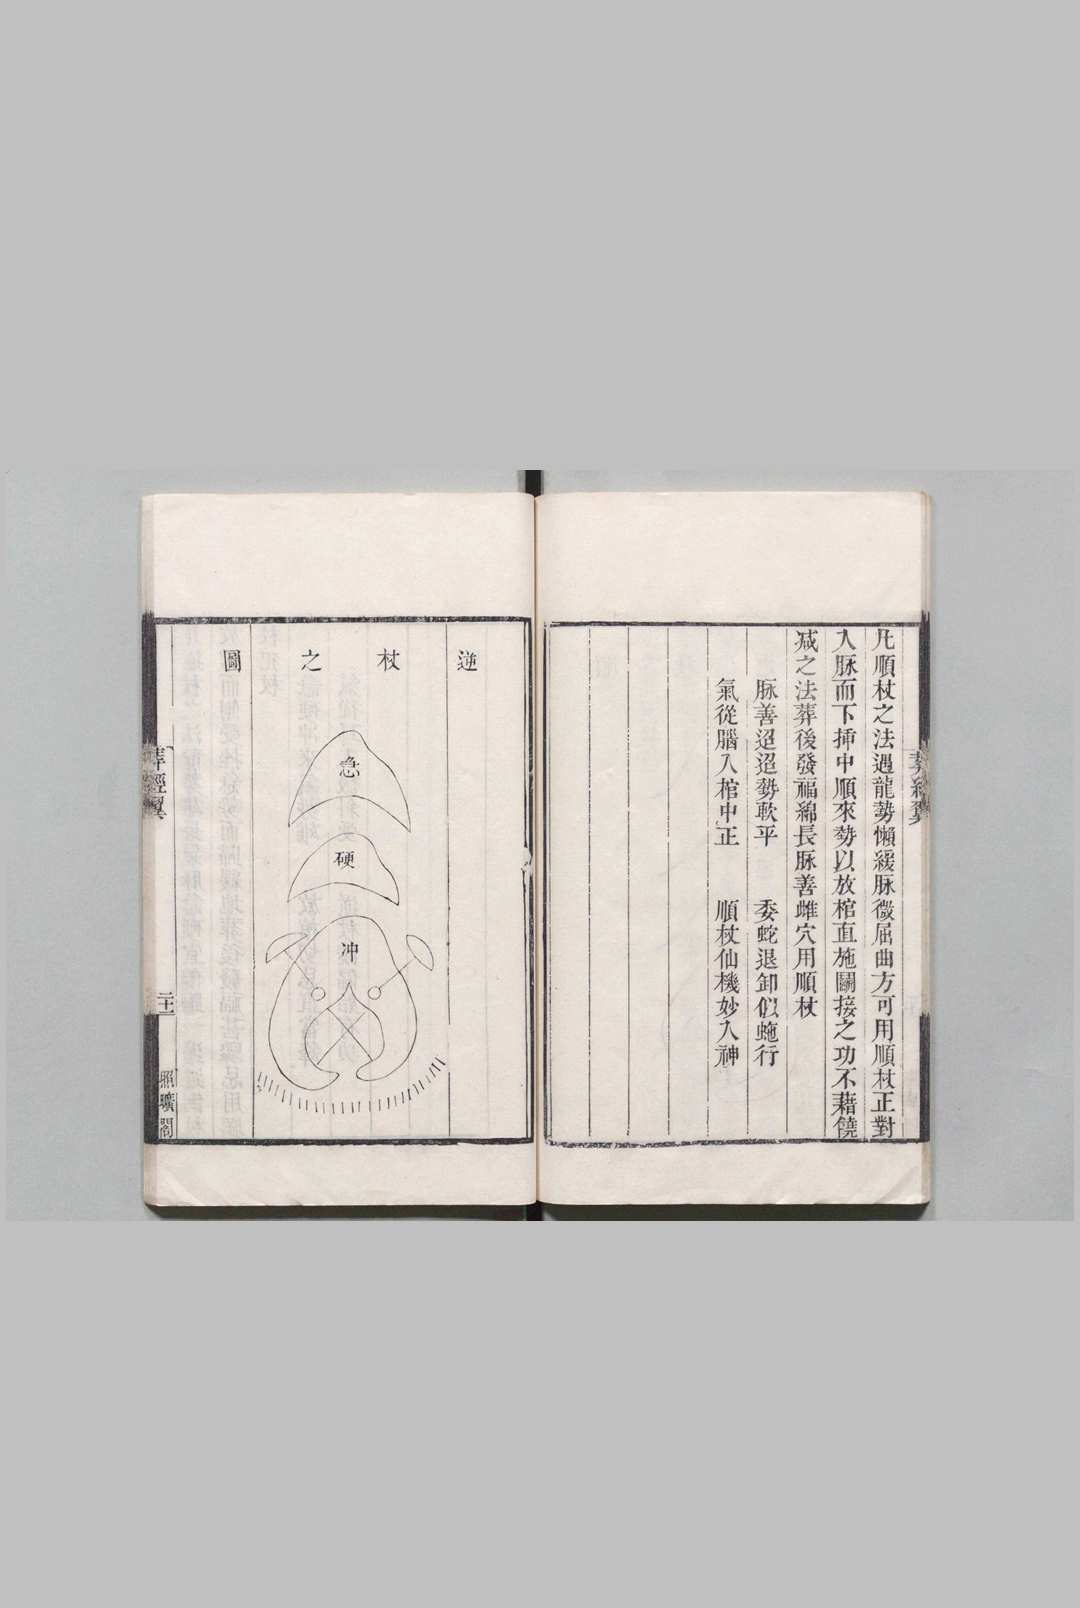 凡順杖之法遇龍勢懶緩脉微屈曲方可用順杖正對
入脉而下揷中順來勢以放棺直施鬭接之功不藉饒
减之法葬後發福綿長脉善雌穴用順杖
脉善迢迢勢軟平　委蛇退卸似虵行
氣從腦入棺中正　順杖仙機妙入神
葬經翼
逆杖之圖
急
硬
冲
葬經翼
二十一
照曠閣